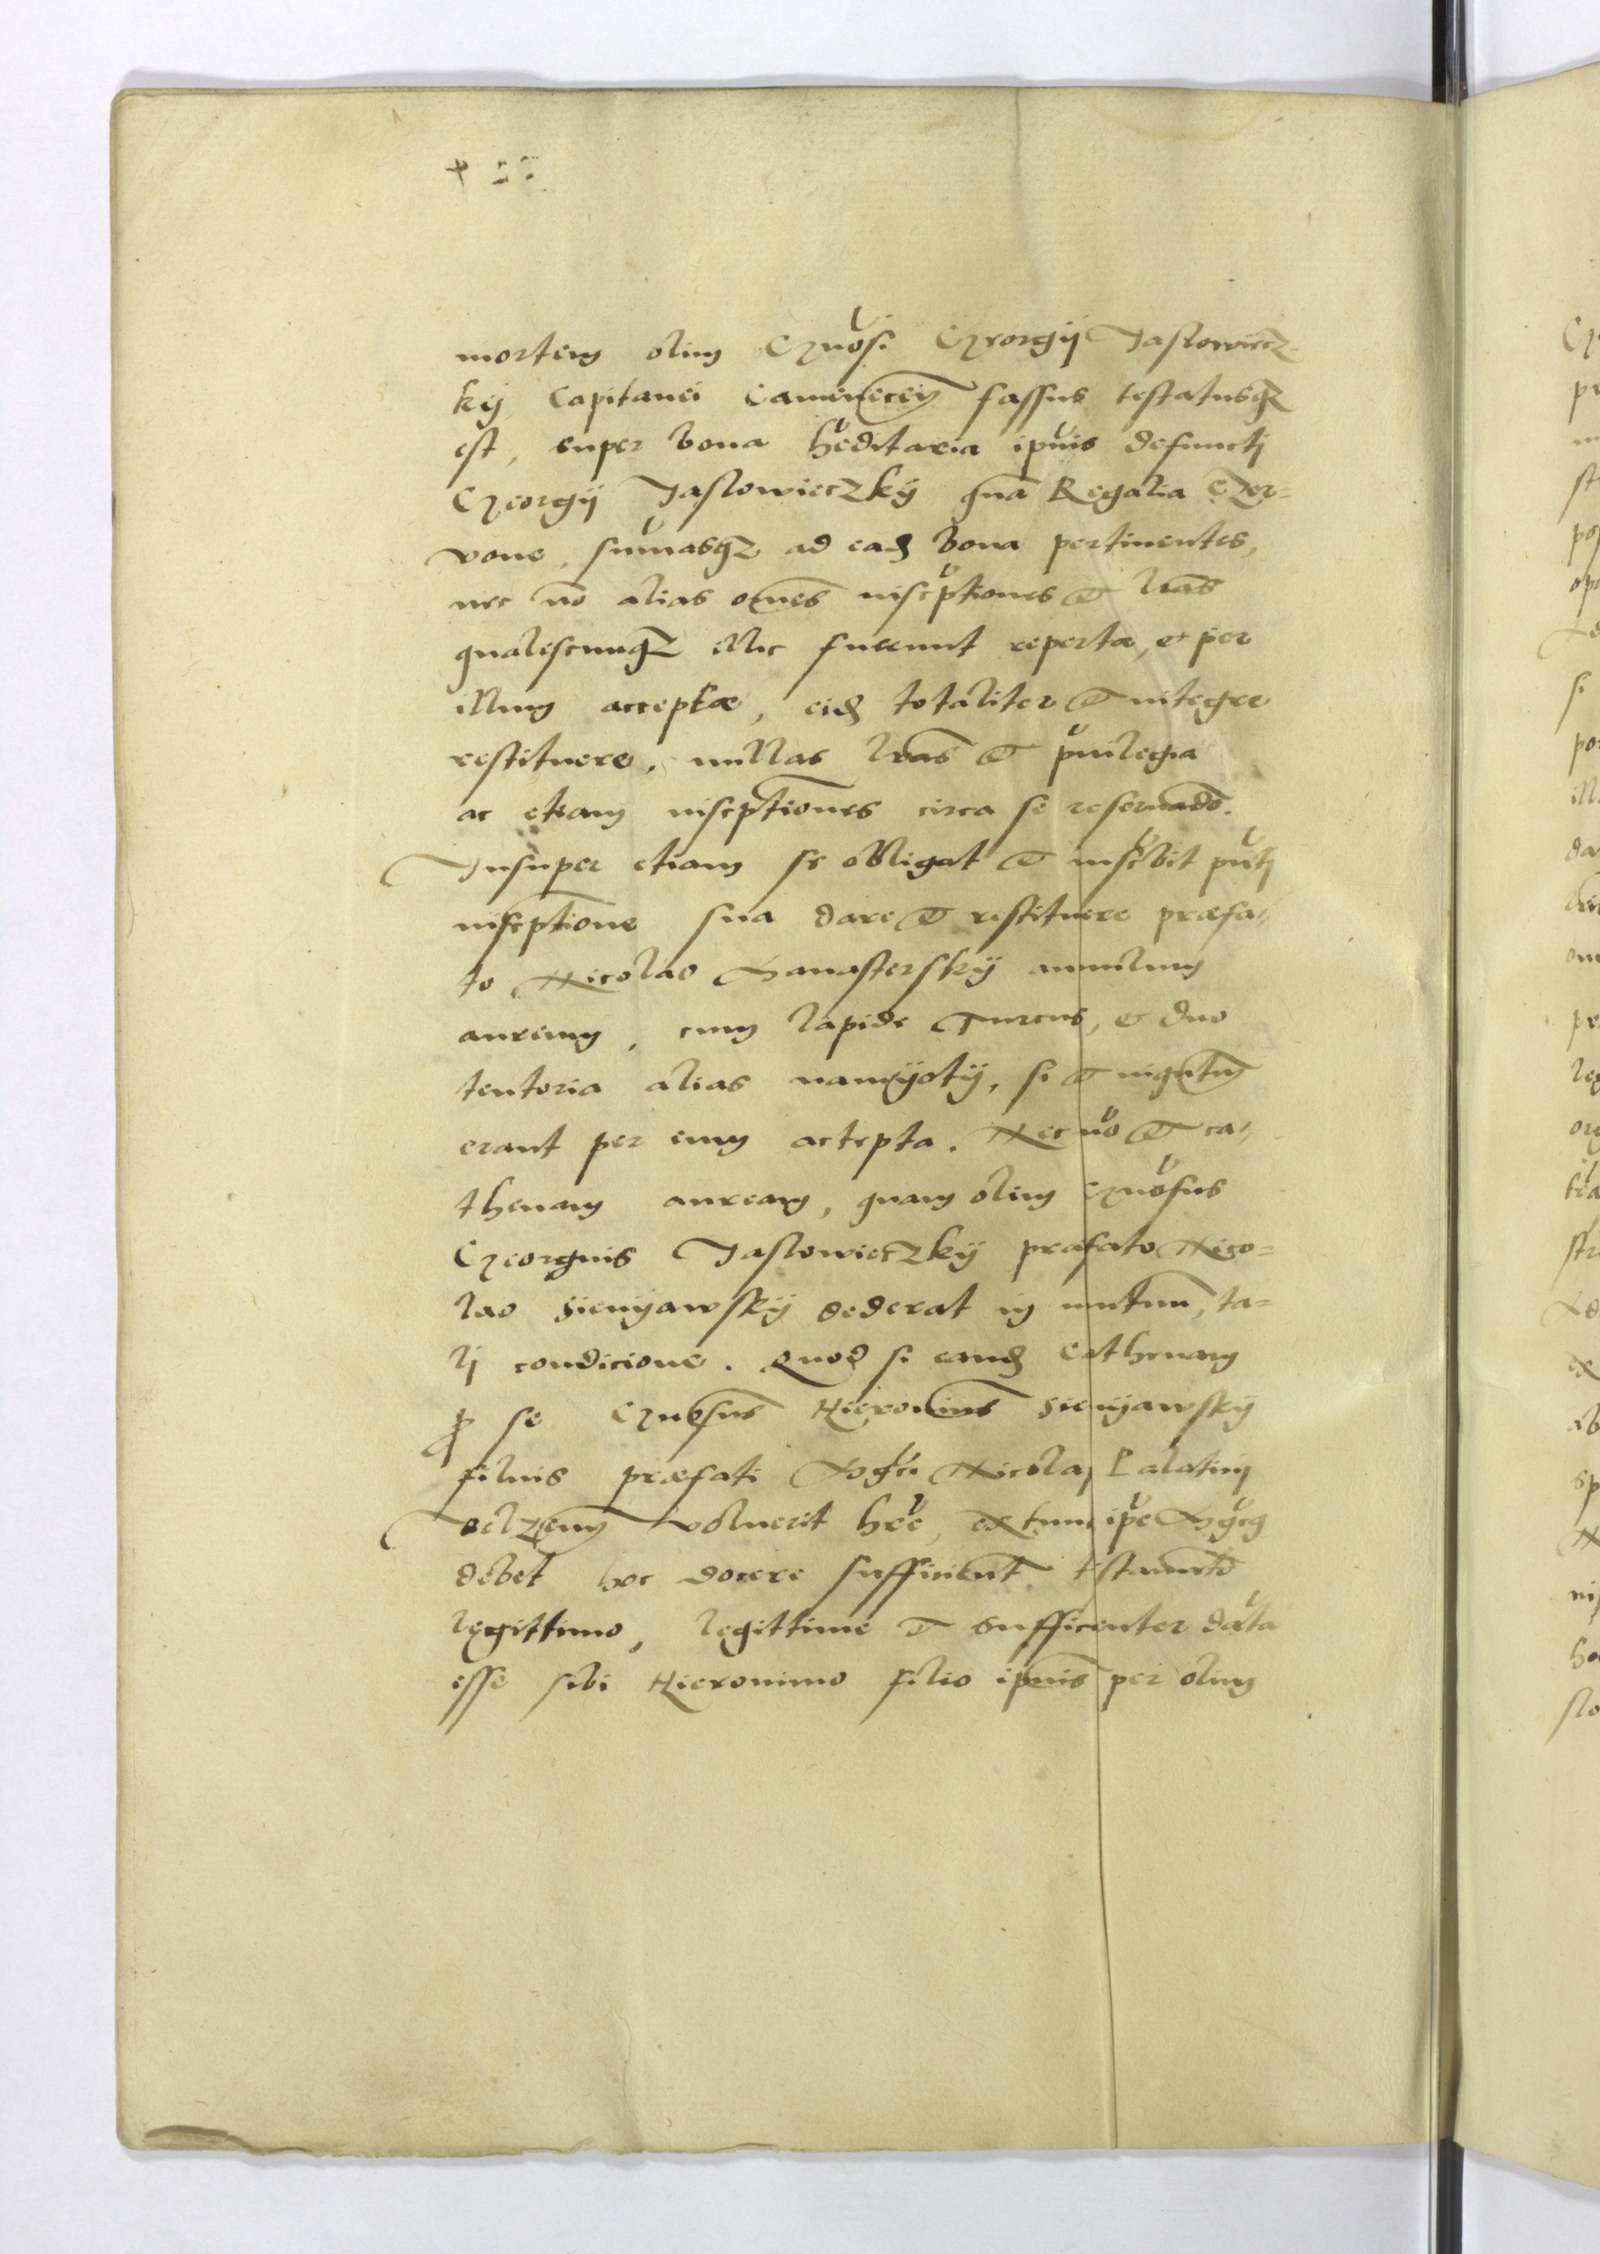 mortem olim Gnosi Georgÿ Jaslowiecz-
kÿ Capitanei Camenecen fassus testatusq3
est, super bona hreditaria ipius defunctj
Georgÿ Jaslowieczkÿ gnà Regalia Czer=
vone, sumasq3 ad ead bona pertinentes,
nec nō alias omēs inscptiones et lras
qualescunq3 illic fuerunt repertæ, et per
illum acceptæ, eid totaliter et integre
restituere, nullas lras et puilegia
ac etiam inscptiones circa se reservādo.
Insuper etiam se obligat et inscbit pntj
inscptione sua dare et restituere præfa-
to Nicolao Banastersky annulum
aureum, cum lapide Turcus, et duo
tentoria alias namÿotÿ, si et
erant per eum accepta. Nec nō et ca-
thenam auream, quam olim Gnosus
Georgius Jaslowieczkÿ præfato Nico=
lao Sienÿawskÿ dederat in mutuum, ta=
lj condicione. Quod si eand Cathenam
p se Gnosus Hieronims Sienÿawskÿ
filius præfati Mgfci Nicolaj Palatinj
Belzen voluerit hre, extunc ipe
debet hoc docere sufficient testamēto
legittimo, legittime et sufficenter data
esse sibi Hieronimo filio ipius per olim